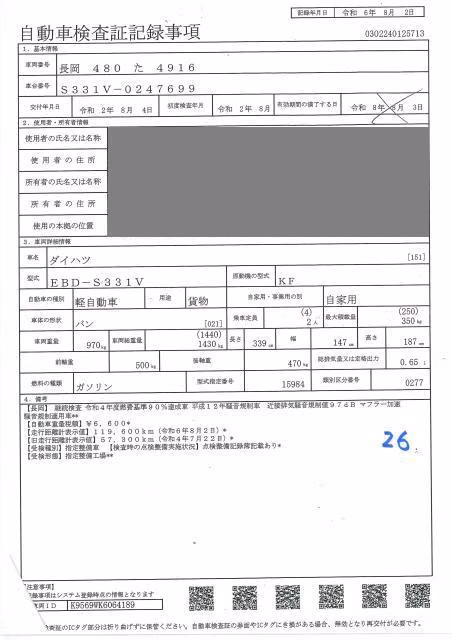 記録年月日 令和 6年 8月 2日
自動車検査証記録事項 0302240125713
1．基本情報
車両番号 長岡 480 た 4916
車台番号 S331V−0247699
交付年月日 令和 2年 8月 4日 初度検査年月 令和 2年 8月 有効期間の満了する日 令和 8年 8月 3日
2．使用者・所有者情報
使用者の氏名又は名称
使用者の住所
所有者の氏名又は名称
所有者の住所
使用の本拠の位置
3．車両詳細情報
車名 ダイハツ [151]
型式 EBD−S331V 原動機の型式 KF
自動車の種別 軽自動車 用途 貨物 自家用・事業用の別 自家用
車体の形状 バン [021] 乗車定員 (4) 2人 最大積載量 (250) 350kg
車両重量 970kg 車両総重量 (1440) 1430kg 長さ 339cm 幅 147cm 高さ 187cm
前軸重 500kg 後軸重 470kg 総排気量又は定格出力 0.65 L
燃料の種類 ガソリン 型式指定番号 15984 類別区分番号 0277
4．備考
【長岡】 継続検査 令和4年度燃費基準90％達成車 平成12年騒音規制車 近接排気騒音規制値97dB マフラー加速
騒音規制適用車**
【自動車重量税額】¥6,600*
【走行距離計表示値】119,600km（令和6年8月2日）*
【旧走行距離計表示値】57,300km（令和4年7月22日）*
【受検種別】指定整備車 【検査時の点検整備実施状況】点検整備記録簿記載あり*
【受検形態】指定整備工場**
26
注意事項】
記録事項はシステム登録時点の情報となります
車両ID K9569WK6064189
検査証のICタグ部分は折り曲げずに保管ください。自動車検査証の券面やICタグにき損がある場合、無効となり再交付が必要です。